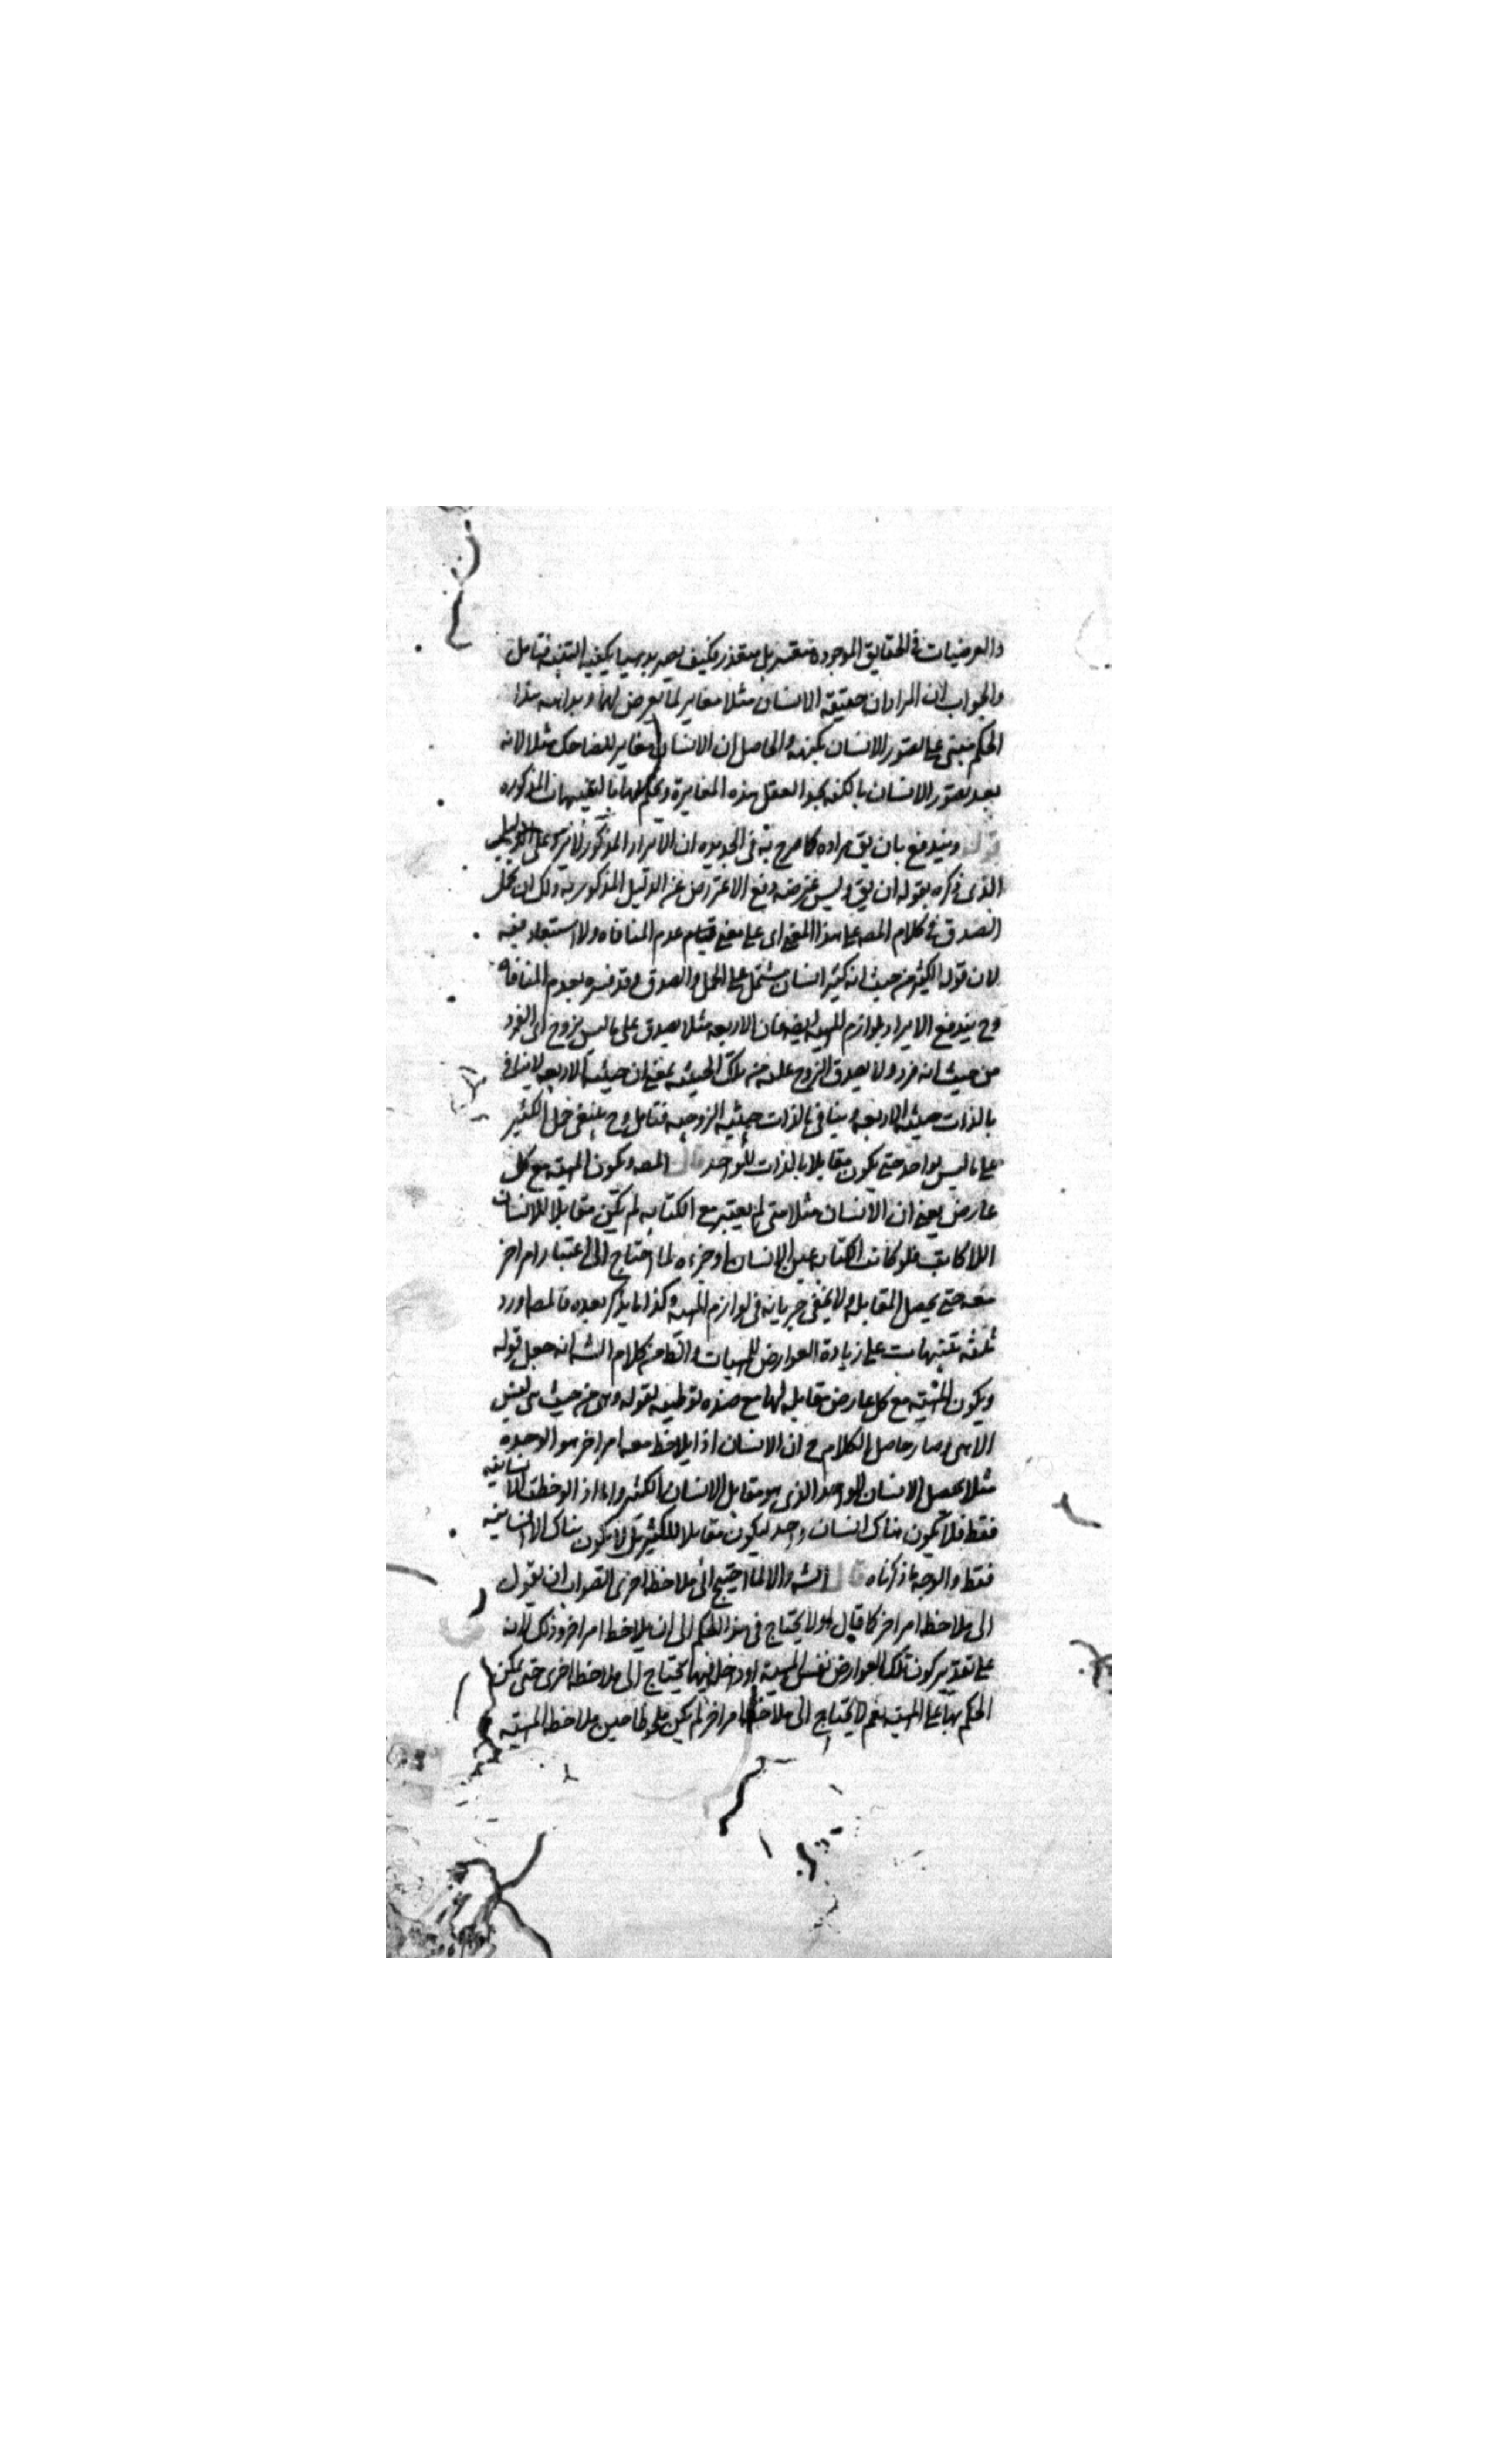 والعرضيات في الحقايق الموجوده متعسر بل متعذر فكيف يصير بديهيا يكفيه التنبيه فتامل
والجواب ان المراد ان حقيقه الانسان مثلا مغاير لما يعرض لها وبداهه هذا
الحكم مبنى على تصور الانسان بكنهه والحاصل ان الانسان مغاير للضاحك مثلا لانه
بعد تصور الانسان بالكنه يجد العقل هذه المغايرة ويحكم بها بالتنبيهات المذكوره
قوله ويندفع بان يق مراده كما صرح به في الجديده ان الايراد المذكور لا يرد على الدليل
الذى ذكره بقوله ان يق وليس غرضه دفع الاعتراض عن الدليل المذكور به ولك ان تحمل
الصدق في كلام المصه على هذا المعنى اى على معنى عدم المنافاه ولا استبعاد فيه
لان قوله الكثير من حيث انه كثير انسان مشتمل على الحمل والصدق وقد فسره بعدم المنافاه
وح يندفع الايراد بلوازم المهيه ايضا فان الاربعه مثلا يصدق على ما ليس بزوج اى الفرد
من حيث انه فرد ولا يصدق الزوج عليه من تلك الحيثيه بمعنى ان حيثيه الاربعه لا ينافى
بالذات حيثيه الاربعه وينافى بالذات حيثيه الزوجيه فتامل وح ينبغى حمل الكثير
على ما ليس بواحد حتى يكون مقابلا بالذات للواحد قال المصه وتكون المهيه مع كل
عارض يعنى ان الانسان مثلا متى لم يعتبر مع الكتابه لم تكن مقابلا للانسان
اللاكاتب فلو كانت الكتابه عين الانسان او جزءه لما احتاج الى اعتبار امر اخر
معه حتى يحصل المقابله ولا يخفى جريانه في لوازم المهيه وكذا ما يذكر بعده فالمصه اورد
ثلثه تنبيهات على زيادة العوارض للمهيات والظ من كلام الشه انه جعل قوله
ويكون المهيه مع كل عارض مقابله لها مع ضده توطيه لقوله وهى من حيث هى ليس
الا هى وصار حاصل الكلام ح ان الانسان اذا يلاحظ معه امر اخر هو الوحده
مثلا يحصل الانسان الواحد الذى هو مقابل الانسان الكثير واما اذا لوحظت الانسانيه
فقط فلا يكون هناك انسان واحد ليكون مقابلا للكثير بل لا يكون هناك الا الانسانيه
فقط والوجه ما ذكرناه قال الشه والا لما احتيج الى ملاحظه اخرى الصواب ان يقول
الى ملاحظه امر اخر كما قال ولا يحتاج في هذا الحكم الى ان يلاحظ امر اخر وذلك لانه
على تقدير كون تلك العوارض نفس المهيه او داخله فيها يحتاج الى ملاحظه اخرى حتى يمكن
الحكم بها على المهيه نعم لا يحتاج الى ملاحظه امر اخر لم يكن ملحوظا حين ملاحظه المهيه